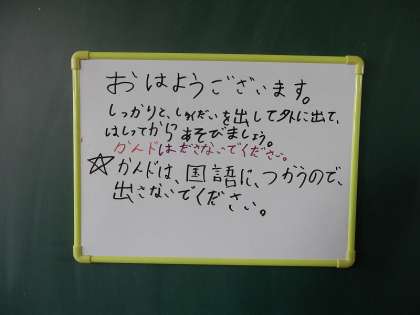 おはようございます。
しっかりと、しゅくだいを出して外に出て、
はしってからあそびましょう。
かんドはださないでください。
☆かんドは、国語に、つかうので、
出さないでください。